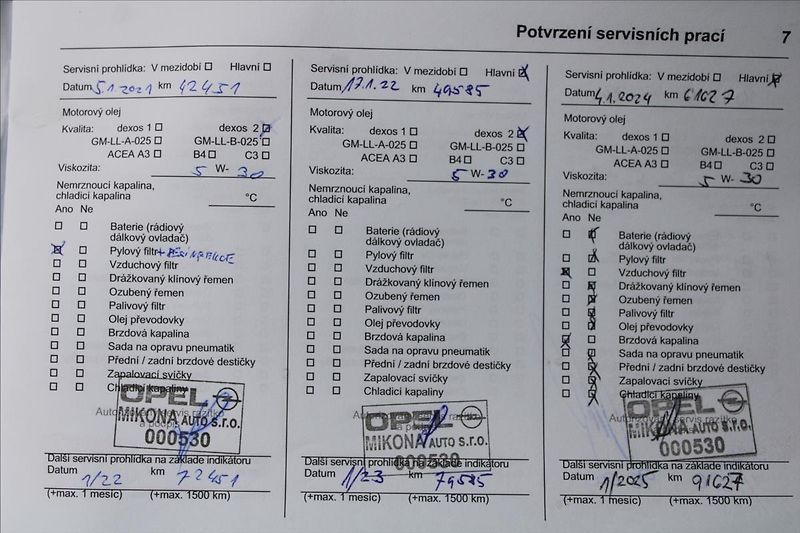 Potvrzení servisních prací 7
Servisní prohlídka: V mezidobí Hlavní
Datum 5.1.2021 km 42451
Motorový olej
Kvalita: dexos 1 dexos 2
GM-LL-A-025 GM-LL-B-025
ACEA A3 B4 C3
Viskozita: 5 W- 30
Nemrznoucí kapalina,
chladicí kapalina °C
Ano Ne
Baterie (rádiový
dálkový ovladač)
Pylový filtr
Vzduchový filtr
Drážkovaný klínový řemen
Ozubený řemen
Palivový filtr
Olej převodovky
Brzdová kapalina
Sada na opravu pneumatik
Přední / zadní brzdové destičky
Zapalovací svíčky
Chladicí kapaliny
OPEL
Autorizovaný servis razítko
a podpis
MIKONA AUTO s.r.o.
000530
Další servisní prohlídka na základě indikátoru
Datum 1/22 km 72451
(+max. 1 měsíc) (+max. 1500 km)
Servisní prohlídka: V mezidobí Hlavní
Datum 17.1.22 km 49585
Motorový olej
Kvalita: dexos 1 dexos 2
GM-LL-A-025 GM-LL-B-025
ACEA A3 B4 C3
Viskozita: 5 W-30
Nemrznoucí kapalina,
chladicí kapalina °C
Ano Ne
Baterie (rádiový
dálkový ovladač)
Pylový filtr
Vzduchový filtr
Drážkovaný klínový řemen
Ozubený řemen
Palivový filtr
Olej převodovky
Brzdová kapalina
Sada na opravu pneumatik
Přední / zadní brzdové destičky
Zapalovací svíčky
Chladicí kapaliny
OPEL
Autorizovaný servis razítko
MIKONA AUTO s.r.o.
000530
Další servisní prohlídka na základě indikátoru
Datum 1/23 km 79585
(+max. 1 měsíc) (+max. 1500 km)
Servisní prohlídka: V mezidobí Hlavní
Datum 4.1.2024 km 61627
Motorový olej
Kvalita: dexos 1 dexos 2
GM-LL-A-025 GM-LL-B-025
ACEA A3 B4 C3
Viskozita: 5 W- 30
Nemrznoucí kapalina,
chladicí kapalina °C
Ano Ne
Baterie (rádiový
dálkový ovladač)
Pylový filtr
Vzduchový filtr
Drážkovaný klínový řemen
Ozubený řemen
Palivový filtr
Olej převodovky
Brzdová kapalina
Sada na opravu pneumatik
Přední / zadní brzdové destičky
Zapalovací svíčky
Chladicí kapaliny
OPEL
Autorizovaný servis razítko
MIKONA AUTO s.r.o.
000530
Další servisní prohlídka na základě indikátoru
Datum 1/2025 km 91627
(+max. 1 měsíc) (+max. 1500 km)